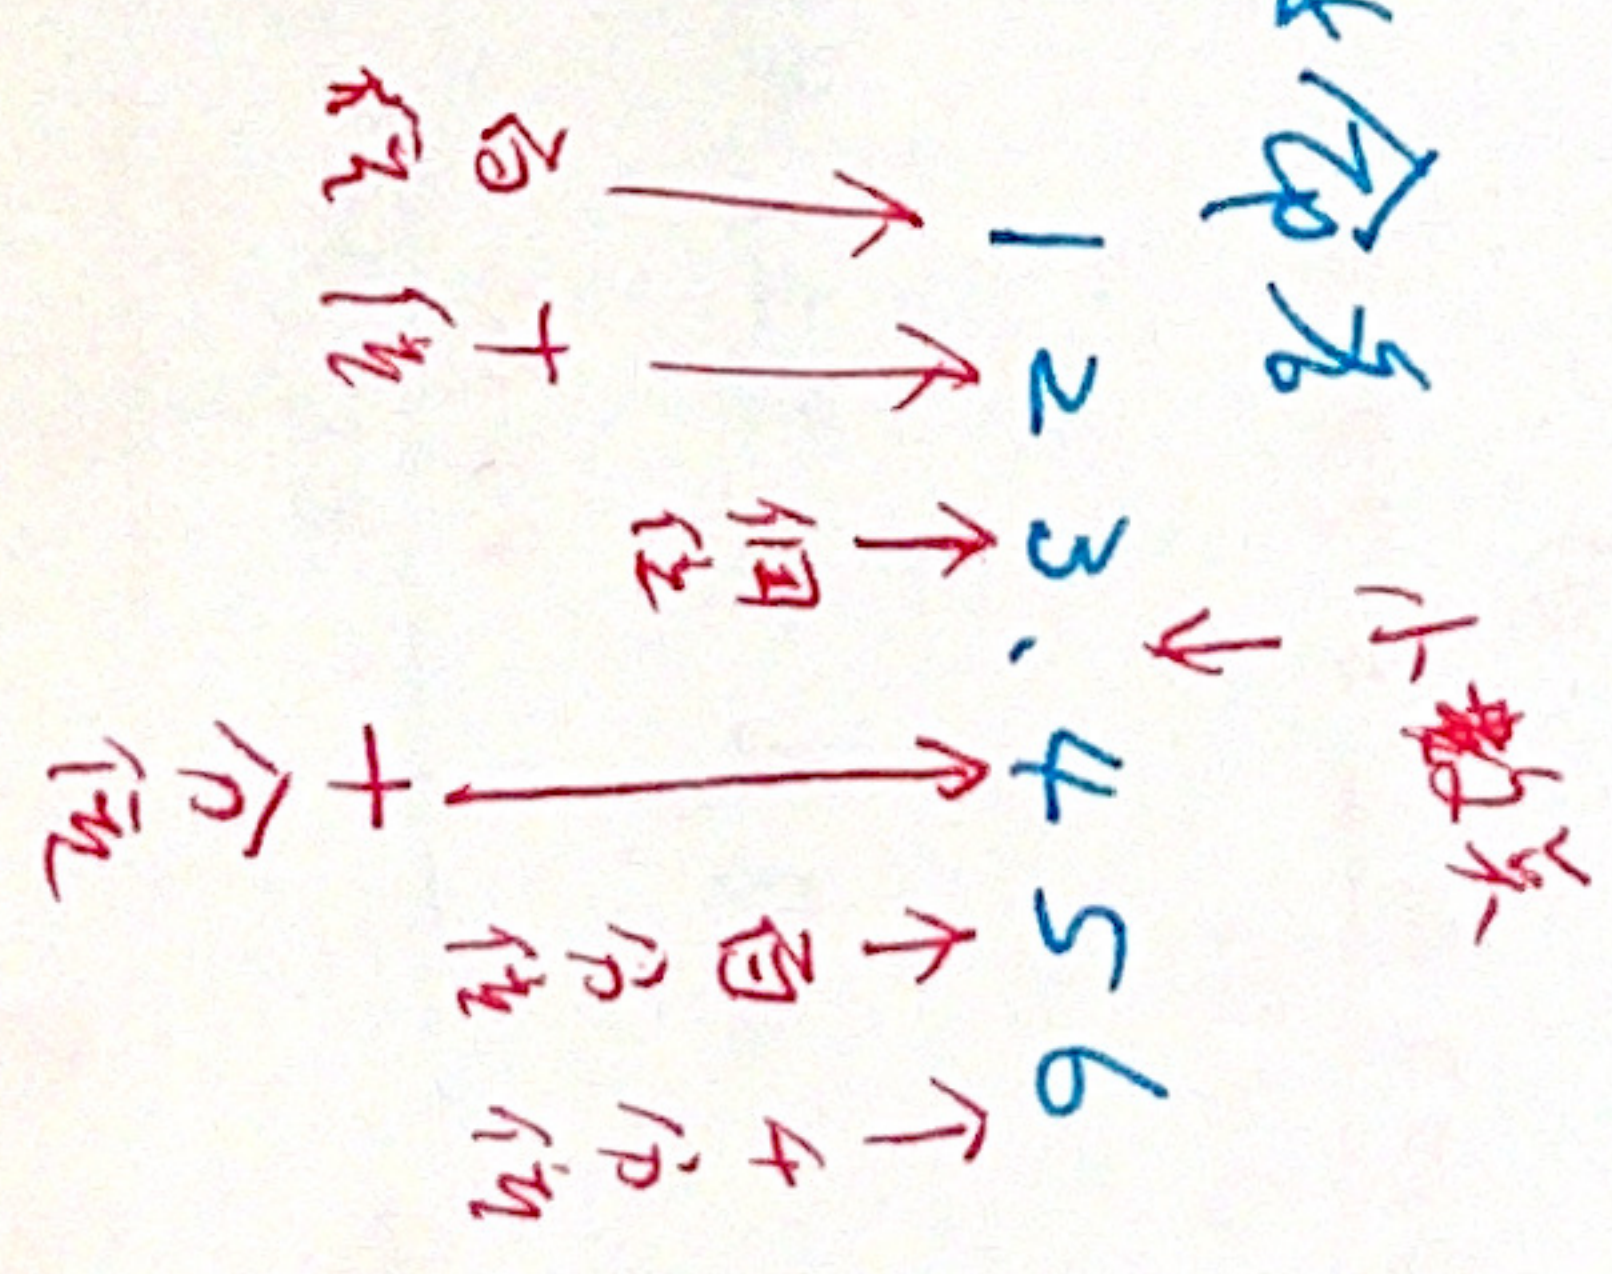 小数点
命名
1 2 3 . 4 5 6
百位
十位
個位
十分位
百分位
千分位